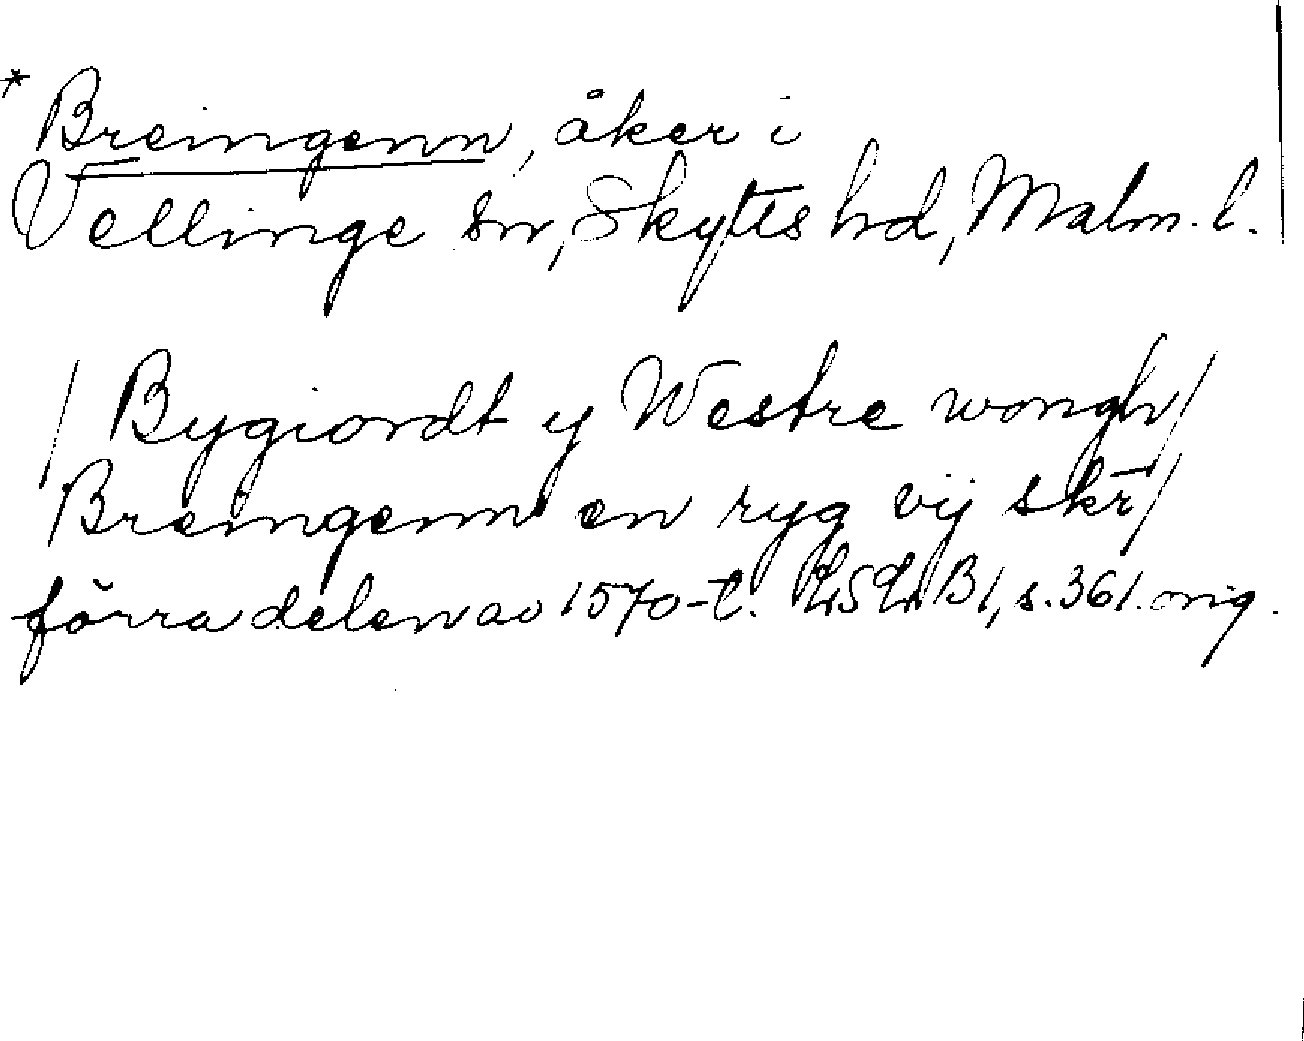 * Breingenn, åker i
Vellinge sn, Skytts hd, Malm. l.
/ Bygiordt y Westre wongh/
Breingenn en ryg vij skr/
förra delen av 1570-t. LSLr B1, s. 361. orig.